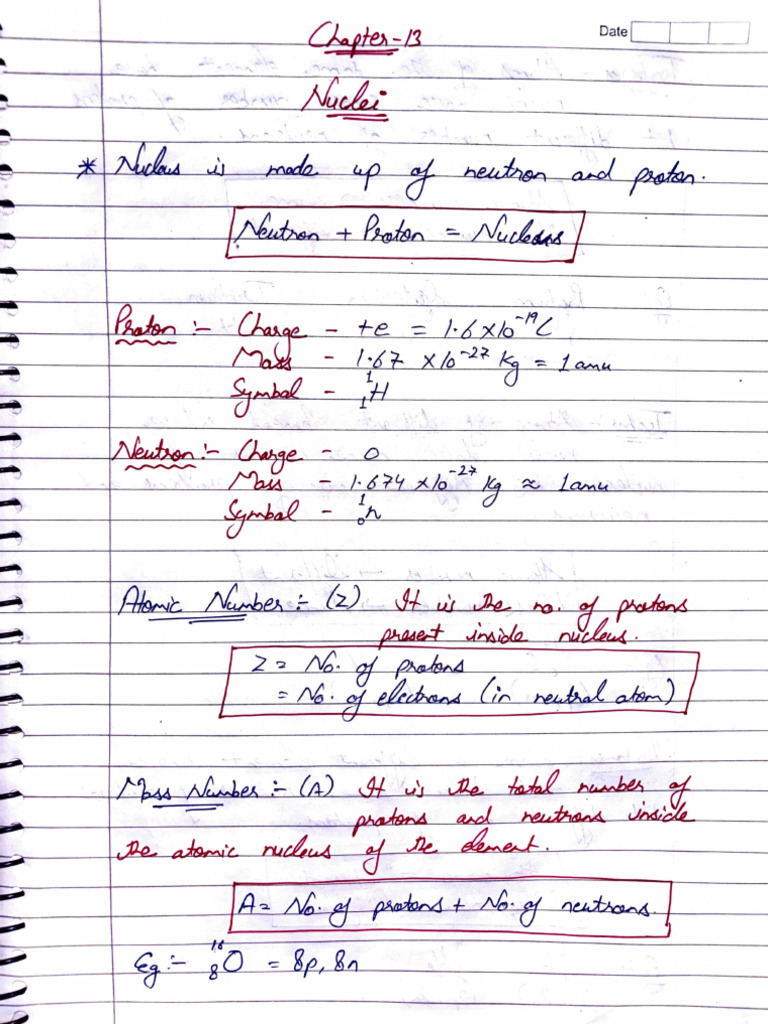 Chapter-13
Date
Nuclei
* Nucleus is made up of neutron and proton.
Neutron + Proton = Nucleons
Proton :- Charge - +e = 1.6 x 10⁻¹⁹ C
Mass - 1.67 x 10⁻²⁷ Kg = 1 amu
Symbol - ¹₁H
Neutron :- Charge - 0
Mass - 1.674 x 10⁻²⁷ Kg ≈ 1 amu
Symbol - ¹₀n
Atomic Number :- (Z) It is the no. of protons
present inside nucleus.
Z = No. of protons
= No. of electrons (in neutral atom)
Mass Number :- (A) It is the total number of
protons and neutrons inside
the atomic nucleus of the element.
A = No. of protons + No. of neutrons.
Eg :- ¹⁶₈O = 8p, 8n